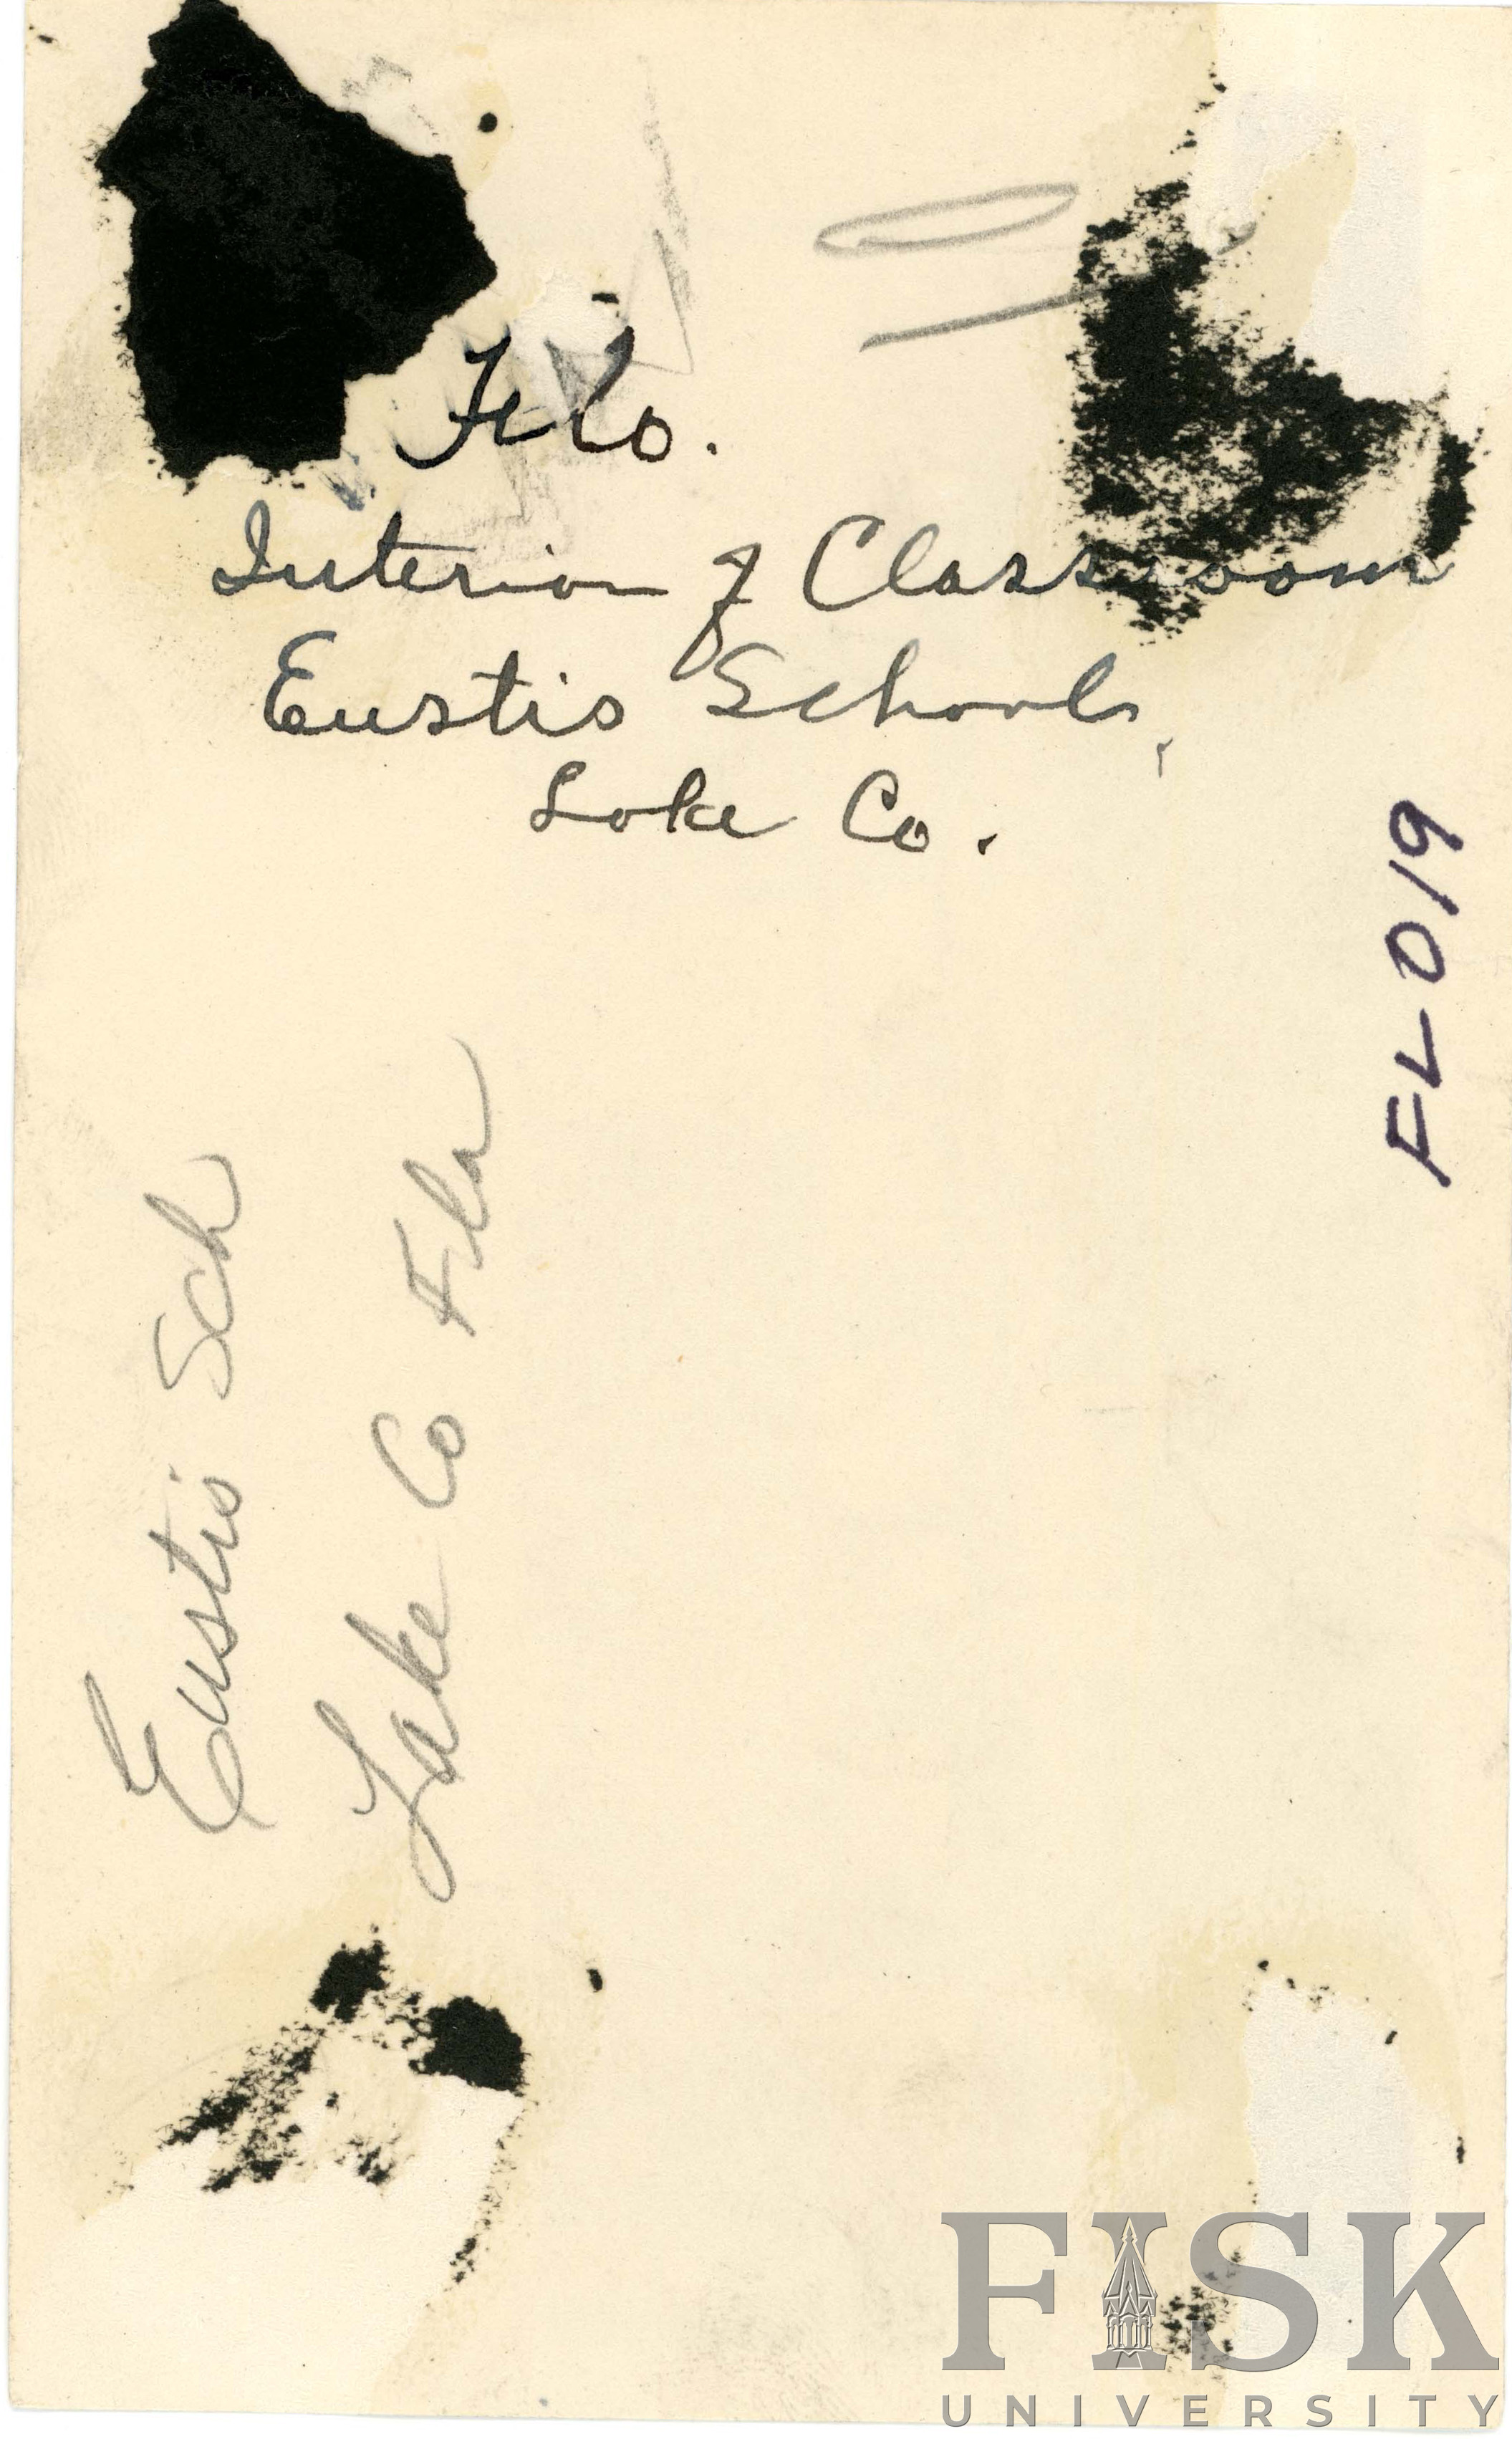 Fla.
Interior of Classroom
Eustis School,
Lake Co.
FL 019
Eustis Sch
Lake Co Fla
FISK
UNIVERSITY